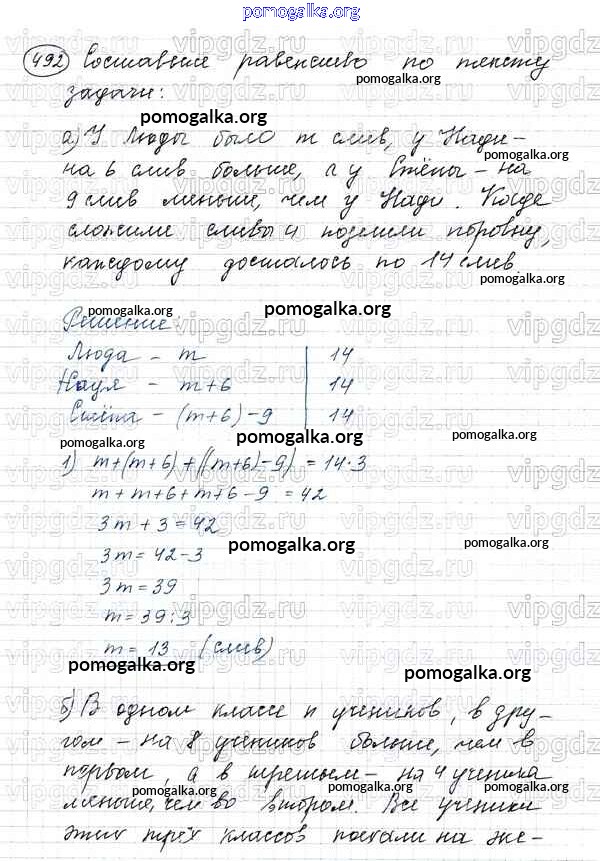 pomogalka.org
492 Составьте равенство по тексту
pomogalka.org
задачи:
pomogalka.org
а) У Люды было m слив, у Нади –
pomogalka.org
на 6 слив больше, а у Стёпы – на
9 слив меньше, чем у Нади. Когда
pomogalka.org
сложили сливы и поделили поровну,
каждому досталось по 14 слив.
pomogalka.org
pomogalka.org
Решение:
Люда – m | 14
Надя – m+6 | 14
pomogalka.org
Стёпа – (m+6)-9 | 14
pomogalka.org
1) m+(m+6)+((m+6)-9) = 14·3
m+m+6+m+6-9 = 42
3m+3=42
3m=42-3
pomogalka.org
pomogalka.org
3m=39
m=39:3
m=13 (слив)
pomogalka.org
pomogalka.org
б) В одном классе n учеников, в дру-
гом – на 8 учеников больше, чем в
pomogalka.org
первом, а в третьем – на 4 ученика
меньше, чем во втором. Все ученики
pomogalka.org
pomogalka.org
этих трёх классов поехали на экс-